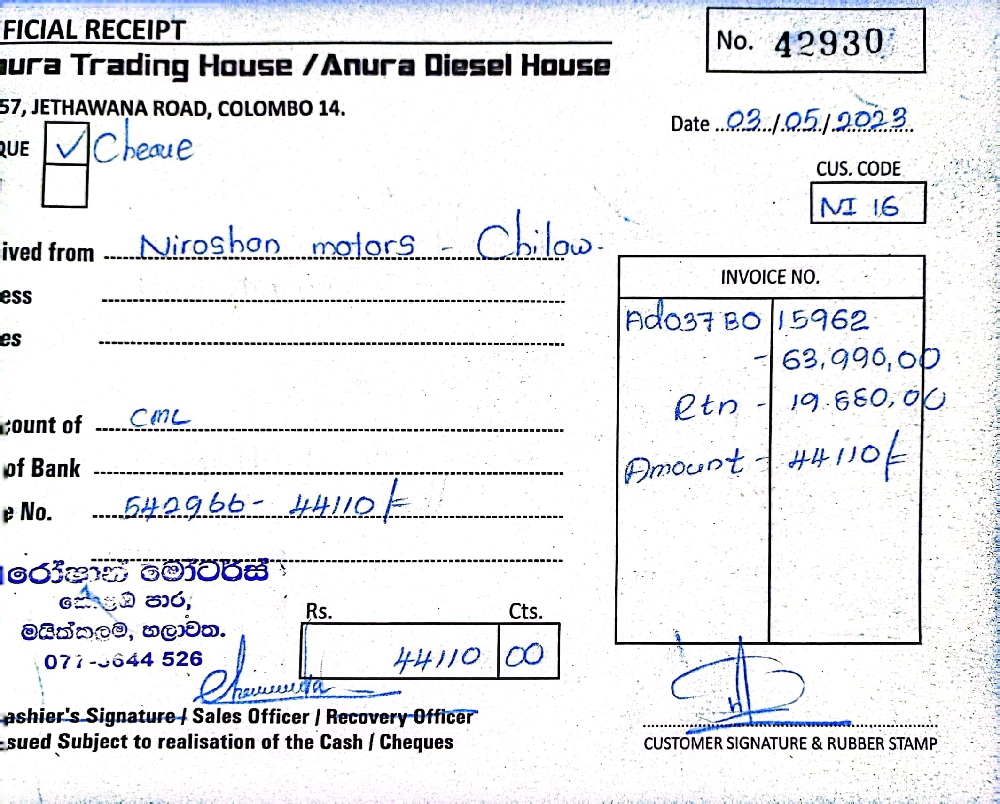 FICIAL RECEIPT
No. 42930
ura Trading House / Anura Diesel House
57, JETHAWANA ROAD, COLOMBO 14.
Date 03/05/2023
QUE ✓ Cheque
CUS. CODE
NI 16
ived from Niroshan motors - Chilaw.
ess
es
INVOICE NO.
Ad037B0 15962
- 63,990,00
Rtn - 19.880,00
Amount - 44110/-
count of CML
of Bank
e No. 542966 - 44110/-
රෝෂාන් මෝටර්ස්
කොළඹ පාර,
මයික්කුලම, හලාවත.
644 526
Rs. Cts.
44110 00
ashier's Signature / Sales Officer / Recovery Officer
sued Subject to realisation of the Cash / Cheques
CUSTOMER SIGNATURE & RUBBER STAMP